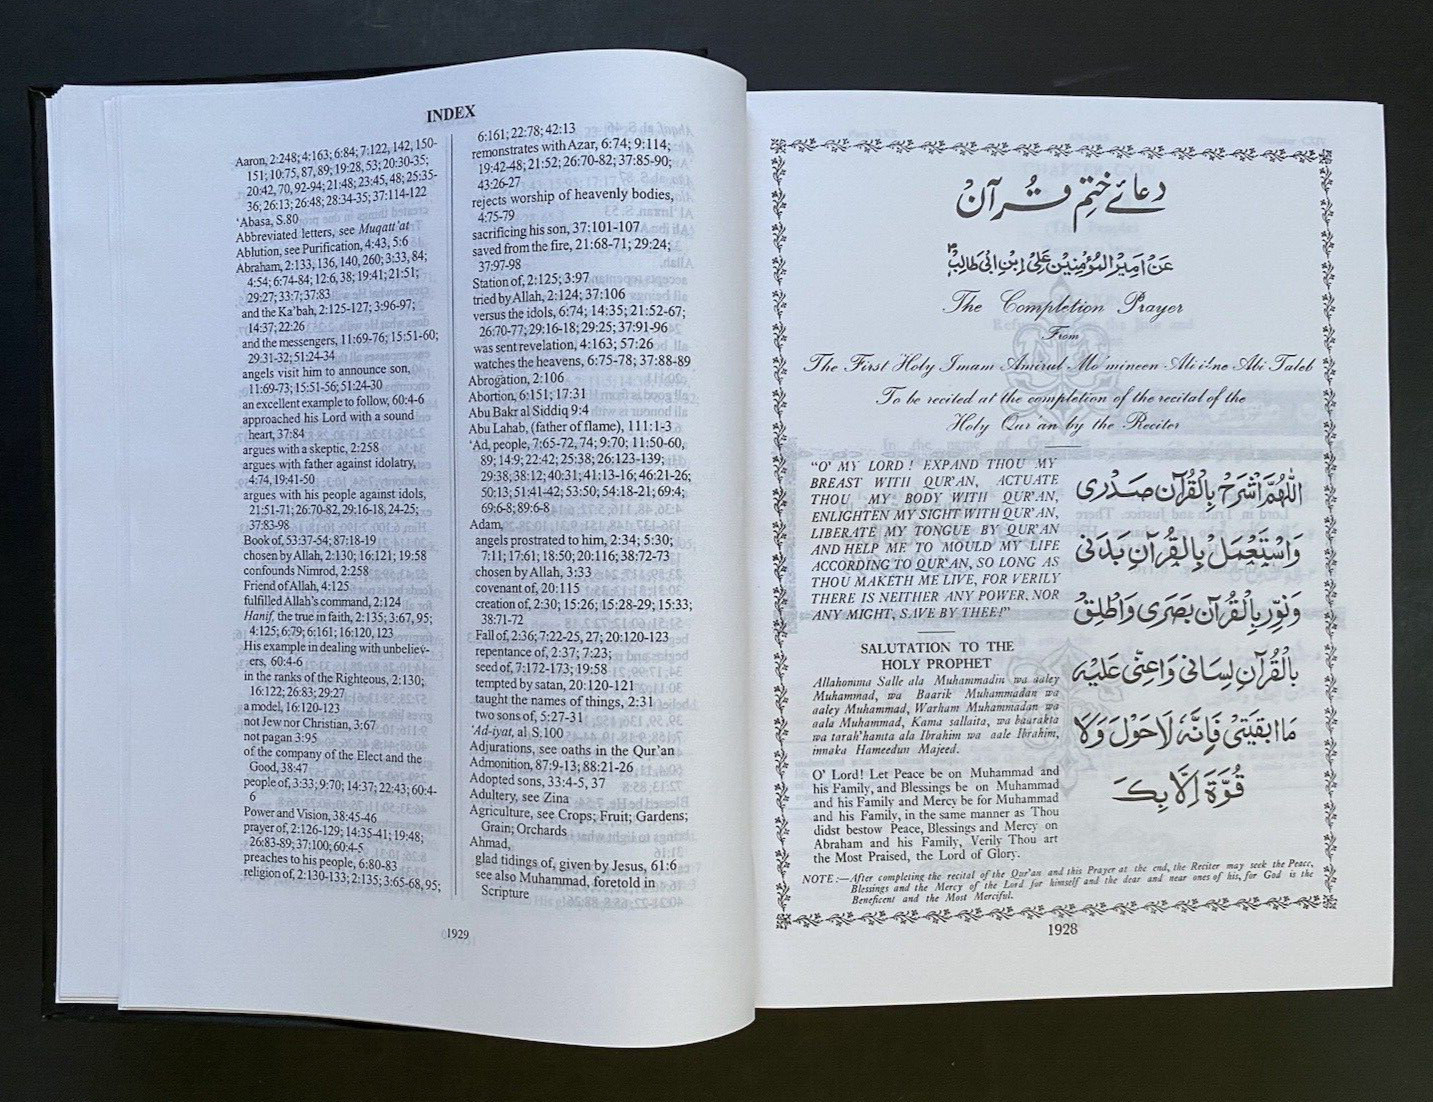 دعائے ختم قرآن
عَنْ اَمِيْرِ الْمُؤْمِنِيْن عَلِى ابْنِ اَبِى طَالِبْ
The Completion Prayer
From
The First Holy Imam Amirul Mo'mineen Ali ibne Abi Taleb
To be recited at the completion of the recital of the
Holy Qur'an by the Reciter
"O' MY LORD! EXPAND THOU MY
BREAST WITH QUR'AN, ACTUATE
THOU MY BODY WITH QUR'AN,
ENLIGHTEN MY SIGHT WITH QUR'AN,
LIBERATE MY TONGUE BY QUR'AN
AND HELP ME TO MOULD MY LIFE
ACCORDING TO QUR'AN, SO LONG AS
THOU MAKETH ME LIVE, FOR VERILY
THERE IS NEITHER ANY POWER, NOR
ANY MIGHT, SAVE BY THEE!"
SALUTATION TO THE
HOLY PROPHET
Allahomma Salle ala Muhammadin wa aaley
Muhammad, wa Baarik Muhammadan wa
aaley Muhammad, Warham Muhammadan wa
aala Muhammad, Kama sallaita, wa baarakta
wa tarah'hamta ala Ibrahim wa aale Ibrahim,
innaka Hameedun Majeed.
O' Lord! Let Peace be on Muhammad and
his Family, and Blessings be on Muhammad
and his Family and Mercy be for Muhammad
and his Family, in the same manner as Thou
didst bestow Peace, Blessings and Mercy on
Abraham and his Family, Verily Thou art
the Most Praised, the Lord of Glory.
اَللّٰهُمَّ اشْرَحْ بِالْقُرْآنِ صَدْرِى
وَاسْتَعْمِلْ بِالْقُرْآنِ بَدَنِى
وَنَوِّرْ بِالْقُرْآنِ بَصَرِى وَاَطْلِقْ
بِالْقُرْآنِ لِسَانِى وَاَعِنِّى عَلَيْهِ
مَا اَبْقَيْتَنِى فَاِنَّهُ لَاحَوْلَ وَلَا
قُوَّةَ اِلَّا بِكَ
NOTE :—After completing the recital of the Qur'an and this Prayer at the end, the Reciter may seek the Peace,
Blessings and the Mercy of the Lord for himself and the dear and near ones of his, for God is the
Beneficent and the Most Merciful.
1928
INDEX
Aaron, 2:248; 4:163; 6:84; 7:122, 142, 150-
151; 10:75, 87, 89; 19:28, 53; 20:30-35;
20:42, 70, 92-94; 21:48; 23:45, 48; 25:35-
36; 26:13; 26:48; 28:34-35; 37:114-122
'Abasa, S.80
Abbreviated letters, see Muqatt'at
Ablution, see Purification, 4:43, 5:6
Abraham, 2:133, 136, 140, 260; 3:33, 84;
4:54; 6:74-84; 12:6, 38; 19:41; 21:51;
29:27; 33:7; 37:83
and the Ka'bah, 2:125-127; 3:96-97;
14:37; 22:26
and the messengers, 11:69-76; 15:51-60;
29:31-32; 51:24-34
angels visit him to announce son,
11:69-73; 15:51-56; 51:24-30
an excellent example to follow, 60:4-6
approached his Lord with a sound
heart, 37:84
argues with a skeptic, 2:258
argues with father against idolatry,
4:74, 19:41-50
argues with his people against idols,
21:51-71; 26:70-82, 29:16-18, 24-25;
37:83-98
Book of, 53:37-54; 87:18-19
chosen by Allah, 2:130; 16:121; 19:58
confounds Nimrod, 2:258
Friend of Allah, 4:125
fulfilled Allah's command, 2:124
Hanif, the true in faith, 2:135; 3:67, 95;
4:125; 6:79; 6:161; 16:120, 123
His example in dealing with unbeliev-
ers, 60:4-6
in the ranks of the Righteous, 2:130;
16:122; 26:83; 29:27
a model, 16:120-123
not Jew nor Christian, 3:67
not pagan 3:95
of the company of the Elect and the
Good, 38:47
people of, 3:33; 9:70; 14:37; 22:43; 60:4-
6
Power and Vision, 38:45-46
prayer of, 2:126-129; 14:35-41; 19:48;
26:83-89; 37:100; 60:4-5
preaches to his people, 6:80-83
religion of, 2:130-133; 2:135; 3:65-68, 95;
6:161; 22:78; 42:13
remonstrates with Azar, 6:74; 9:114;
19:42-48; 21:52; 26:70-82; 37:85-90;
43:26-27
rejects worship of heavenly bodies,
4:75-79
sacrificing his son, 37:101-107
saved from the fire, 21:68-71; 29:24;
37:97-98
Station of, 2:125; 3:97
tried by Allah, 2:124; 37:106
versus the idols, 6:74; 14:35; 21:52-67;
26:70-77; 29:16-18; 29:25; 37:91-96
was sent revelation, 4:163; 57:26
watches the heavens, 6:75-78; 37:88-89
Abrogation, 2:106
Abortion, 6:151; 17:31
Abu Bakr al Siddiq 9:4
Abu Lahab, (father of flame), 111:1-3
'Ad, people, 7:65-72, 74; 9:70; 11:50-60,
89; 14:9; 22:42; 25:38; 26:123-139;
29:38; 38:12; 40:31; 41:13-16; 46:21-26;
50:13; 51:41-42; 53:50; 54:18-21; 69:4;
69:6-8; 89:6-8
Adam,
angels prostrated to him, 2:34; 5:30;
7:11; 17:61; 18:50; 20:116; 38:72-73
chosen by Allah, 3:33
covenant of, 20:115
creation of, 2:30; 15:26; 15:28-29; 15:33;
38:71-72
Fall of, 2:36; 7:22-25, 27; 20:120-123
repentance of, 2:37; 7:23;
seed of, 7:172-173; 19:58
tempted by satan, 20:120-121
taught the names of things, 2:31
two sons of, 5:27-31
'Ad-iyat, al S.100
Adjurations, see oaths in the Qur'an
Admonition, 87:9-13; 88:21-26
Adopted sons, 33:4-5, 37
Adultery, see Zina
Agriculture, see Crops; Fruit; Gardens;
Grain; Orchards
Ahmad,
glad tidings of, given by Jesus, 61:6
see also Muhammad, foretold in
Scripture
1929